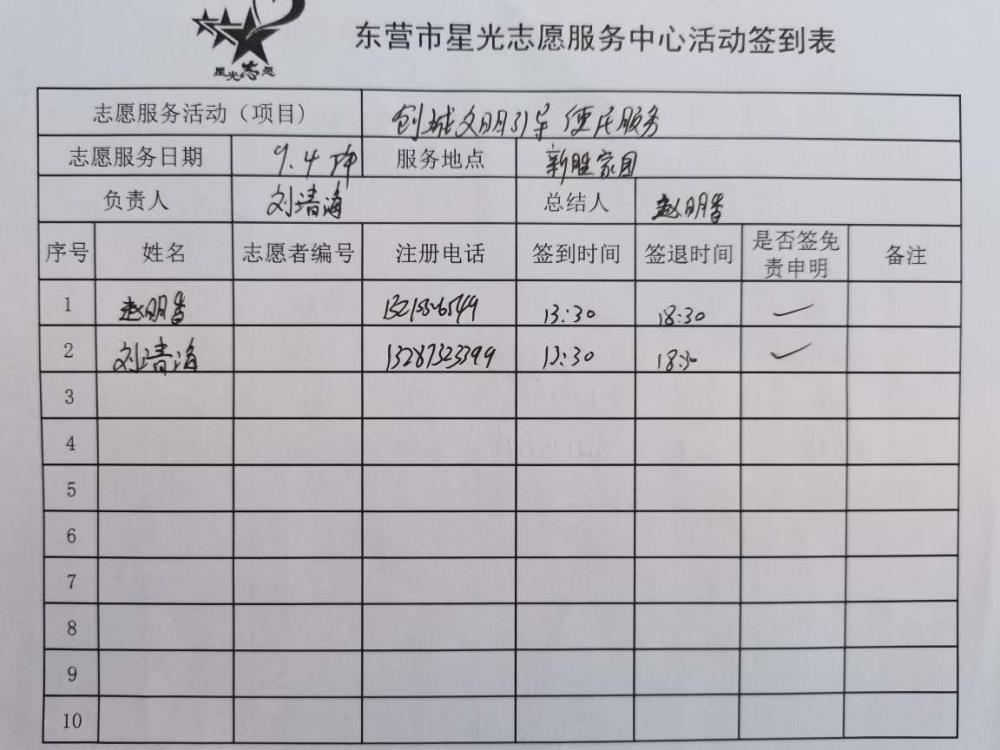 星光志愿
东营市星光志愿服务中心活动签到表
志愿服务活动（项目） 创城文明引导 便民服务
志愿服务日期 9.4 服务地点 新胜家园
负责人 刘清海 总结人 赵明香
序号 姓名 志愿者编号 注册电话 签到时间 签退时间 是否签免责申明 备注
1 赵明香 13:30 18:30 ✓
2 刘清海 13287323399 13:30 18:30 ✓
3
4
5
6
7
8
9
10